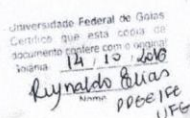 Universidade Federal de Goiás
Certifico que esta cópia do
documento confere com o original
Goiânia 14 / 10 / 2016
Reynaldo Elias
Nome
PPGEIFE
UFG